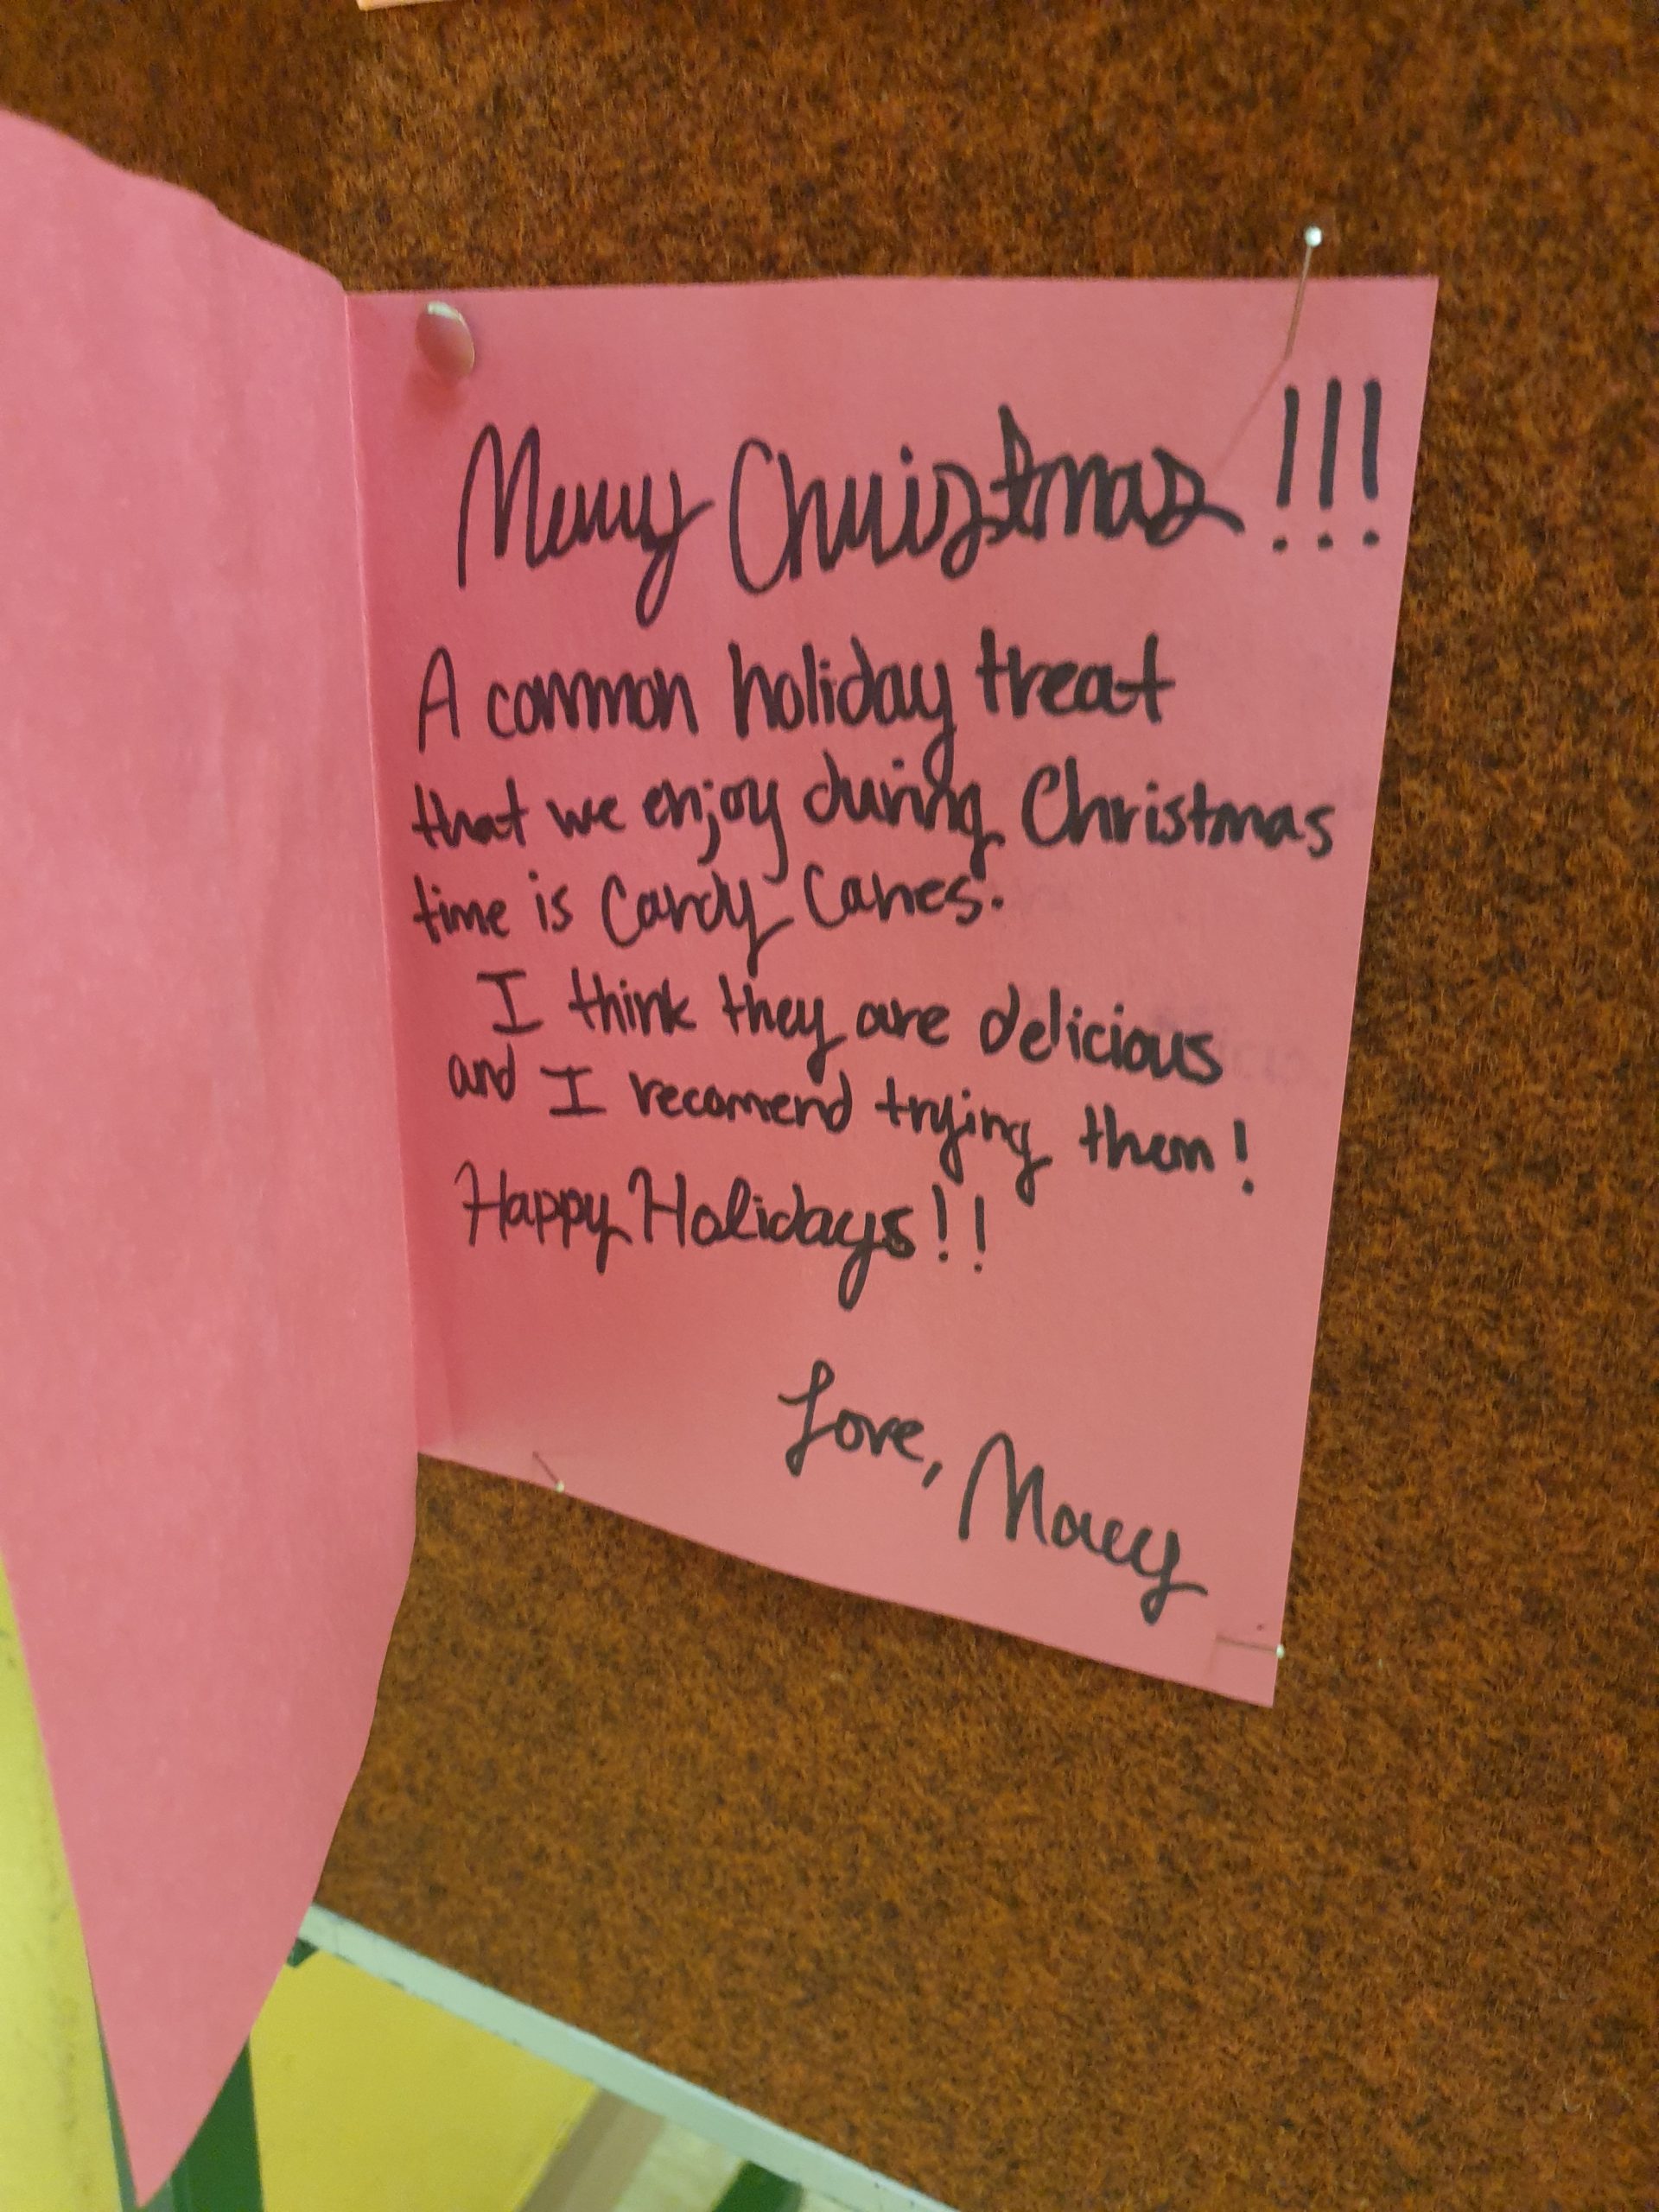 Merry Christmas!!!
A common holiday treat
that we enjoy during Christmas
time is Candy Canes.
I think they are delicious
and I recomend trying them!
Happy Holidays!!
Love, Macy